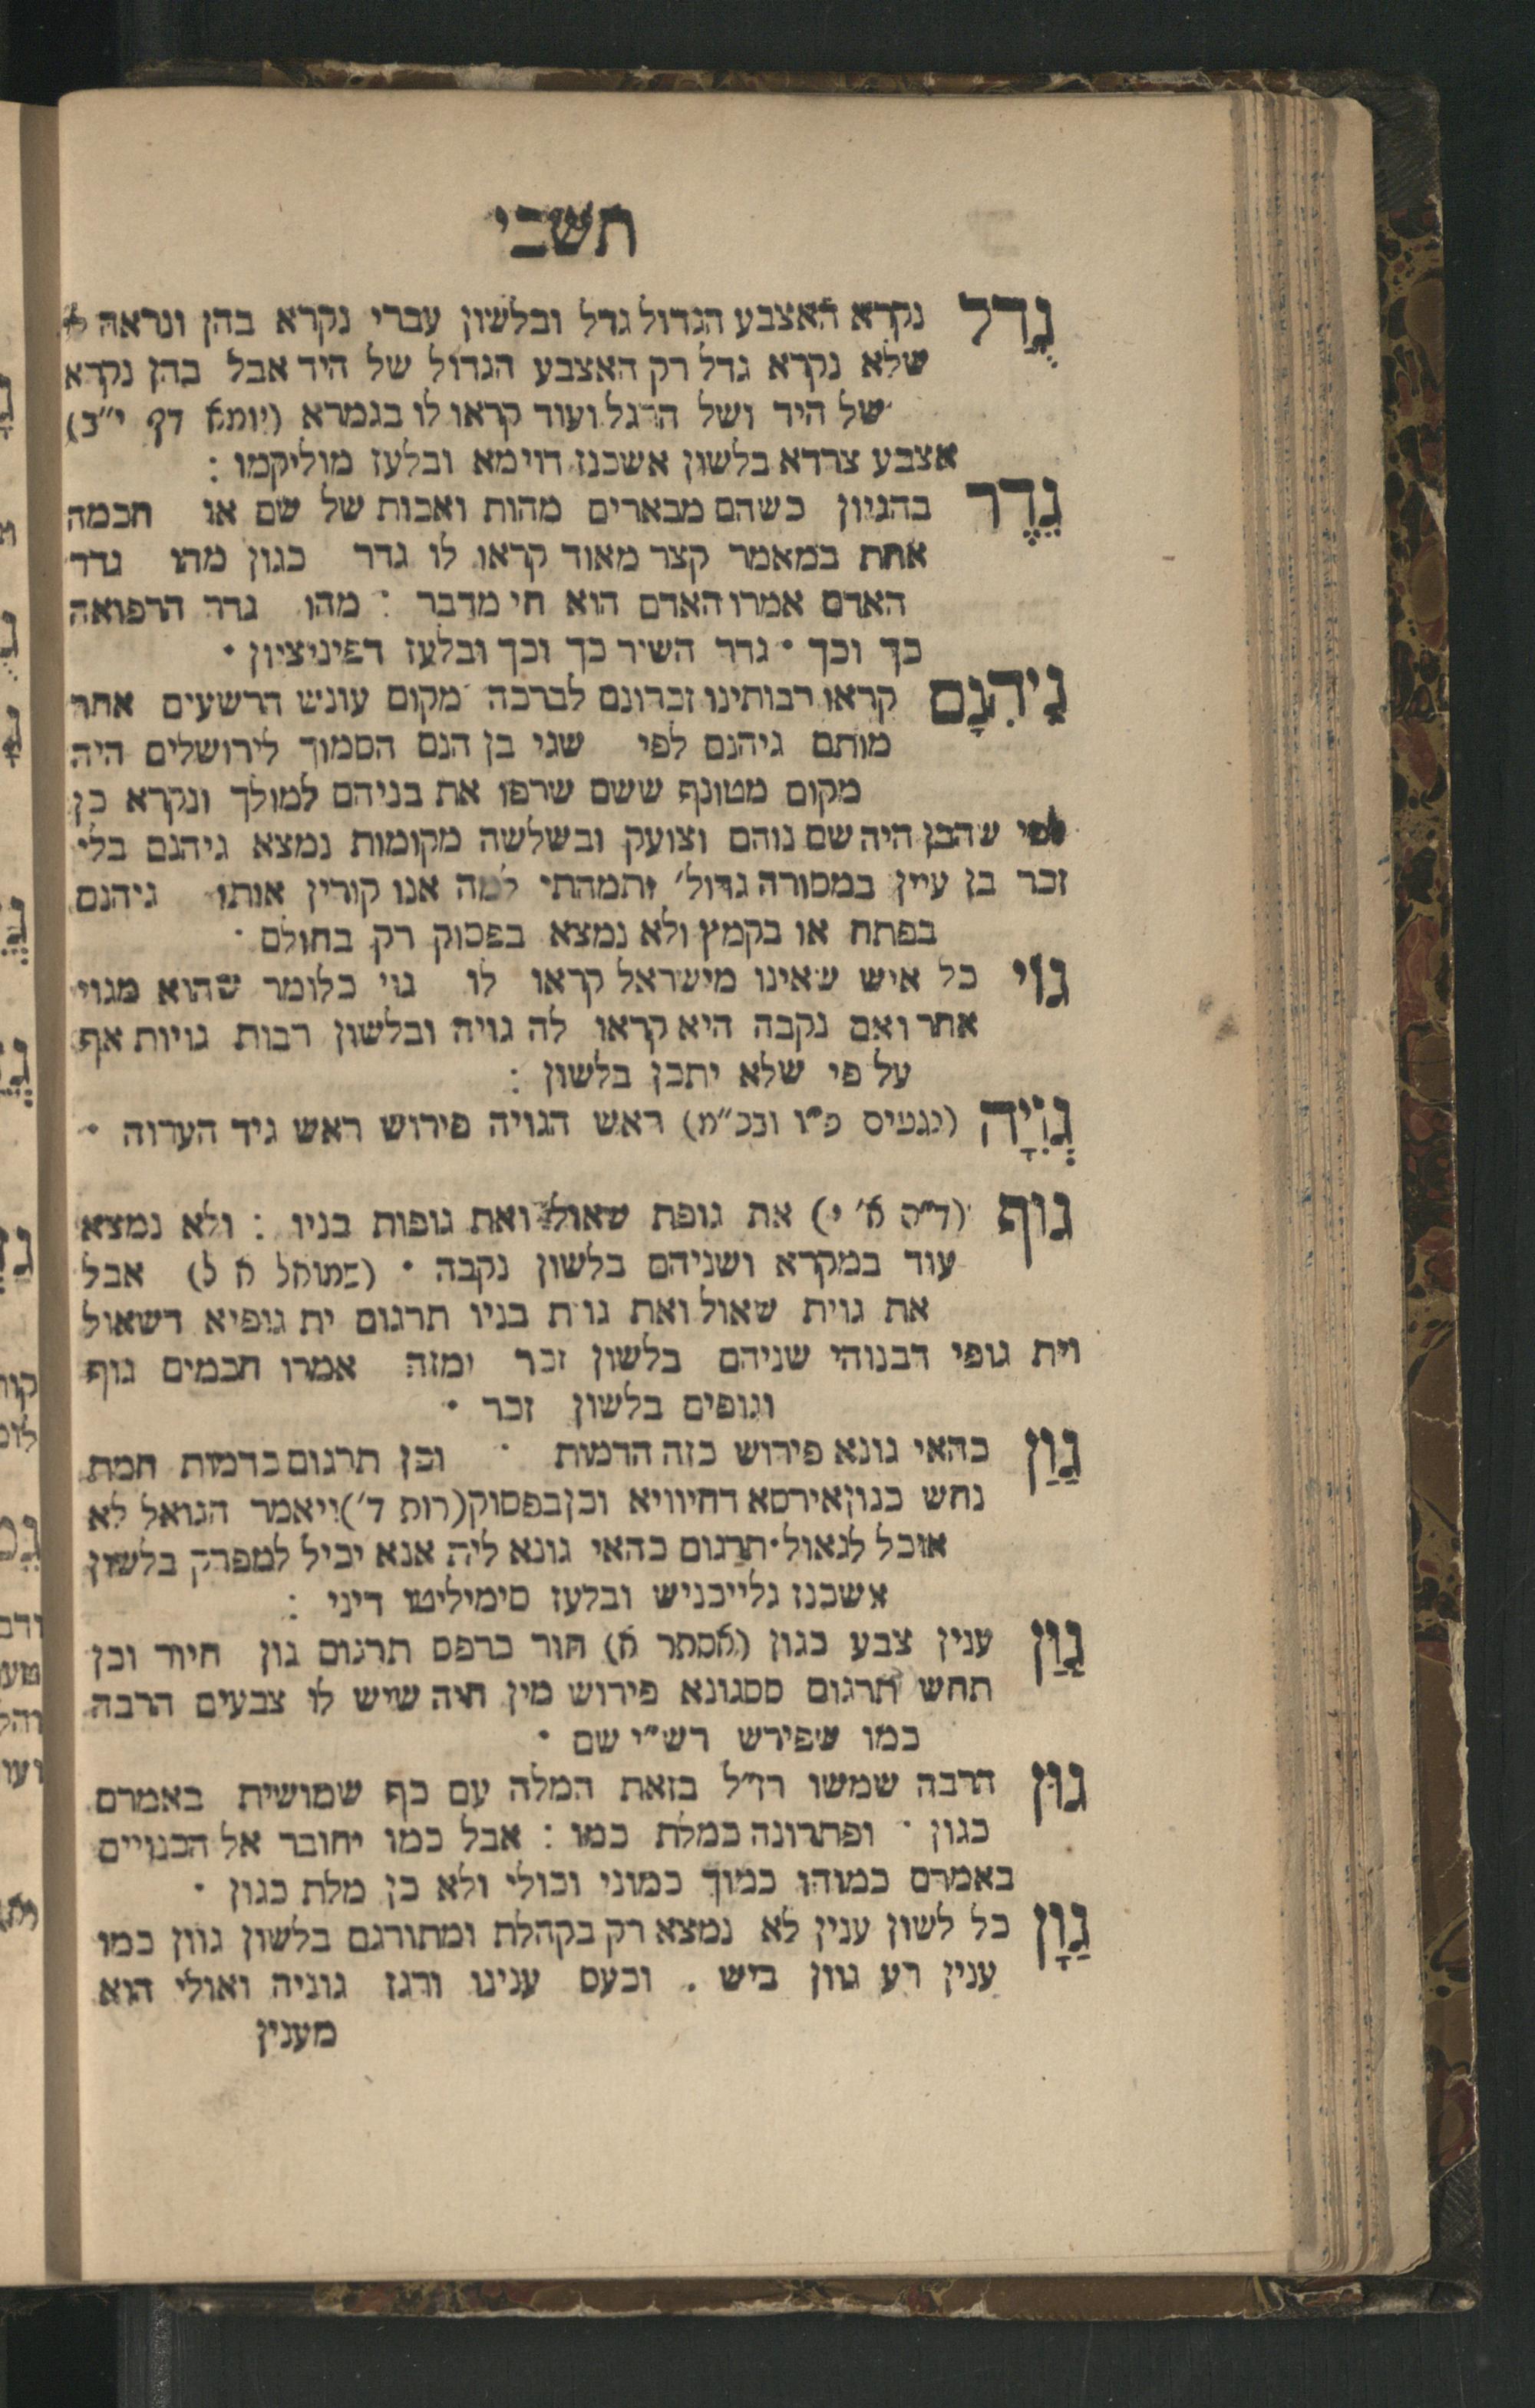 תשבי
גֻדַל נקרא האצבע הגדול גדל ובלשון עברי נקרא בהן ונראה לי
שלא נקרא גדל רק האצבע הגדול של היד אבל בהן נקרא
של היד ושל הרגל ועוד קראו לו בגמרא (יומא דף י״ב)
אצבע צרדא בלשון אשכנז דוימא ובלעז מוליקמו :
גֶדֶר בהגיון כשהם מבארים מהות ואכות של שם או חכמה
אחת במאמר קצר מאוד קראו לו גדר כגון מהו גדר
האדם אמרו האדם הוא חי מדבר : מהו גדר הרפואה
כך וכך · גדר השיר כך וכך ובלעז דפיניציון ·
גֵיהִנָם קראו רבותינו זכרונם לברכה מקום עונש הרשעים אחר
מותם גיהנם לפי שגי בן הנם הסמוך לירושלים היה
מקום מטונף ששם שרפו את בניהם למולך ונקרא כן
לפי שהבן היה שם נוהם וצועק ובשלשה מקומות נמצא גיהנם בלי
זכר בן עיין במסורה גדול׳ ותמהתי למה אנו קורין אותו גיהנם
בפתח או בקמץ ולא נמצא בפסוק רק בחולם ·
גוֹי כל איש שאינו מישראל קראו לו גוי כלומר שהוא מגוי
אחר ואם נקבה היא קראו לה גויה ובלשון רבות גויות אף
על פי שלא יתכן בלשון :
גְוִיָה (נגעים פ״ו ובכ״מ) ראש הגויה פירוש ראש גיד הערוה ·
גוּף (ד״ה א׳ י) את גופת שאול ואת גופות בניו : ולא נמצא
עוד במקרא ושניהם בלשון נקבה · (שמואל א ל) אבל
את גוית שאול ואת גוית בניו תרגום ית גופיא דשאול
וית גופי דבנוהי שניהם בלשון זכר ומזה אמרו חכמים גוף
וגופים בלשון זכר ·
גַוַן כהאי גונא פירוש כזה הדמות · וכן תרגום כדמות חמת
נחש כגון אירסא דחיוויא וכן בפסוק (רות ד׳) ויאמר הגואל לא
אוכל לגאול · תרגום כהאי גונא לית אנא יכיל למפרק בלשון
אשכנז גלייכניש ובלעז סימיליטו דיני :
גַוַן ענין צבע כגון (אסתר א) חור כרפס תרגום גון חיור וכן
תחש תרגום ססגונא פירוש מין חיה שיש לו צבעים הרבה
כמו שפירש רש״י שם ·
גוּן הרבה שמשו רז״ל בזאת המלה עם כף שמושית באמרם
כגון · ופתרונה כמלת כמו : אבל כמו יחובר אל הכנויים
באמרם כמוהו כמוך כמוני וכולי ולא כן מלת כגון ·
גַוָן כל לשון ענין לא נמצא רק בקהלת ומתורגם בלשון גוון כמו
ענין רע גוון ביש . וכעס ענינו ורגז גוניה ואולי הוא
מענין